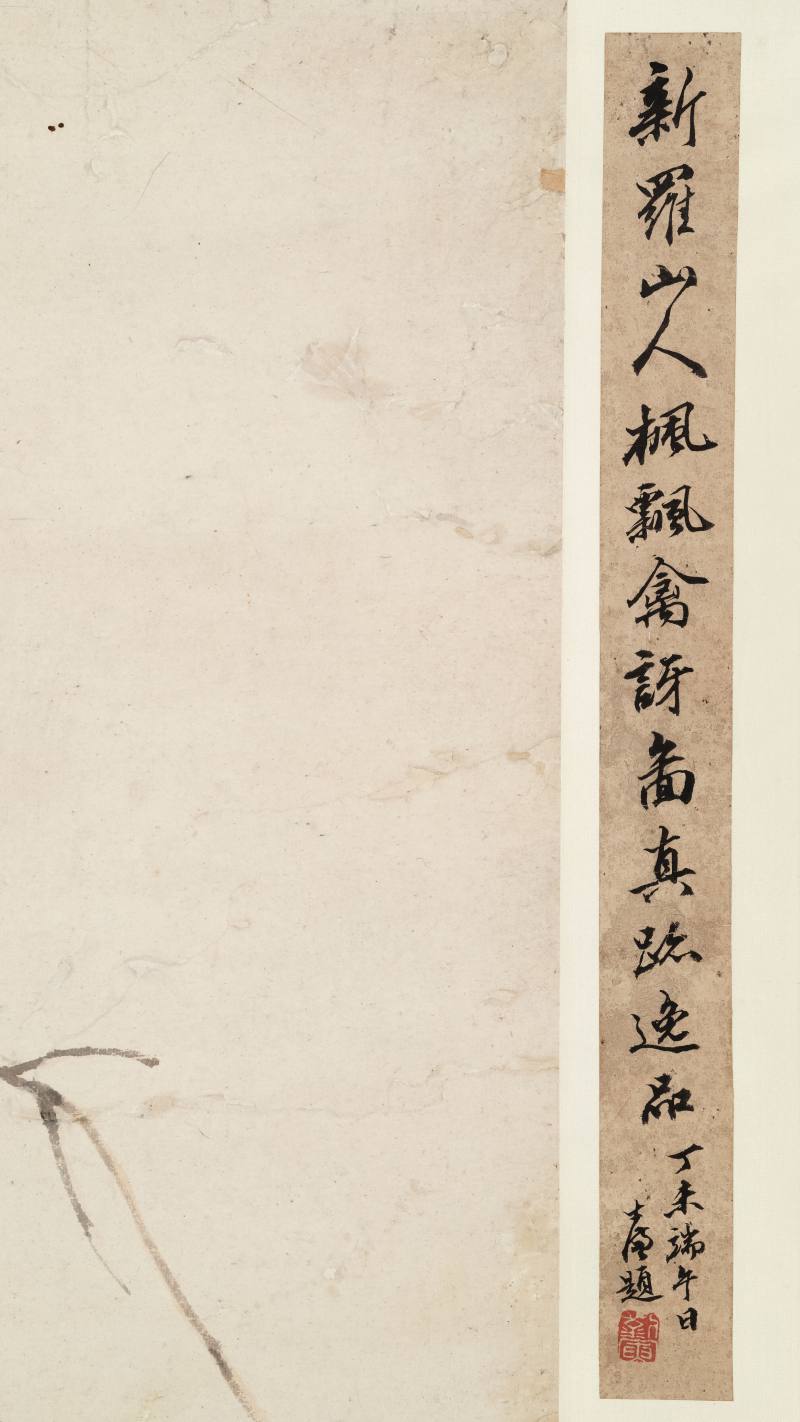 新羅山人楓飄禽訝圖真跡逸品
丁未端午日
題